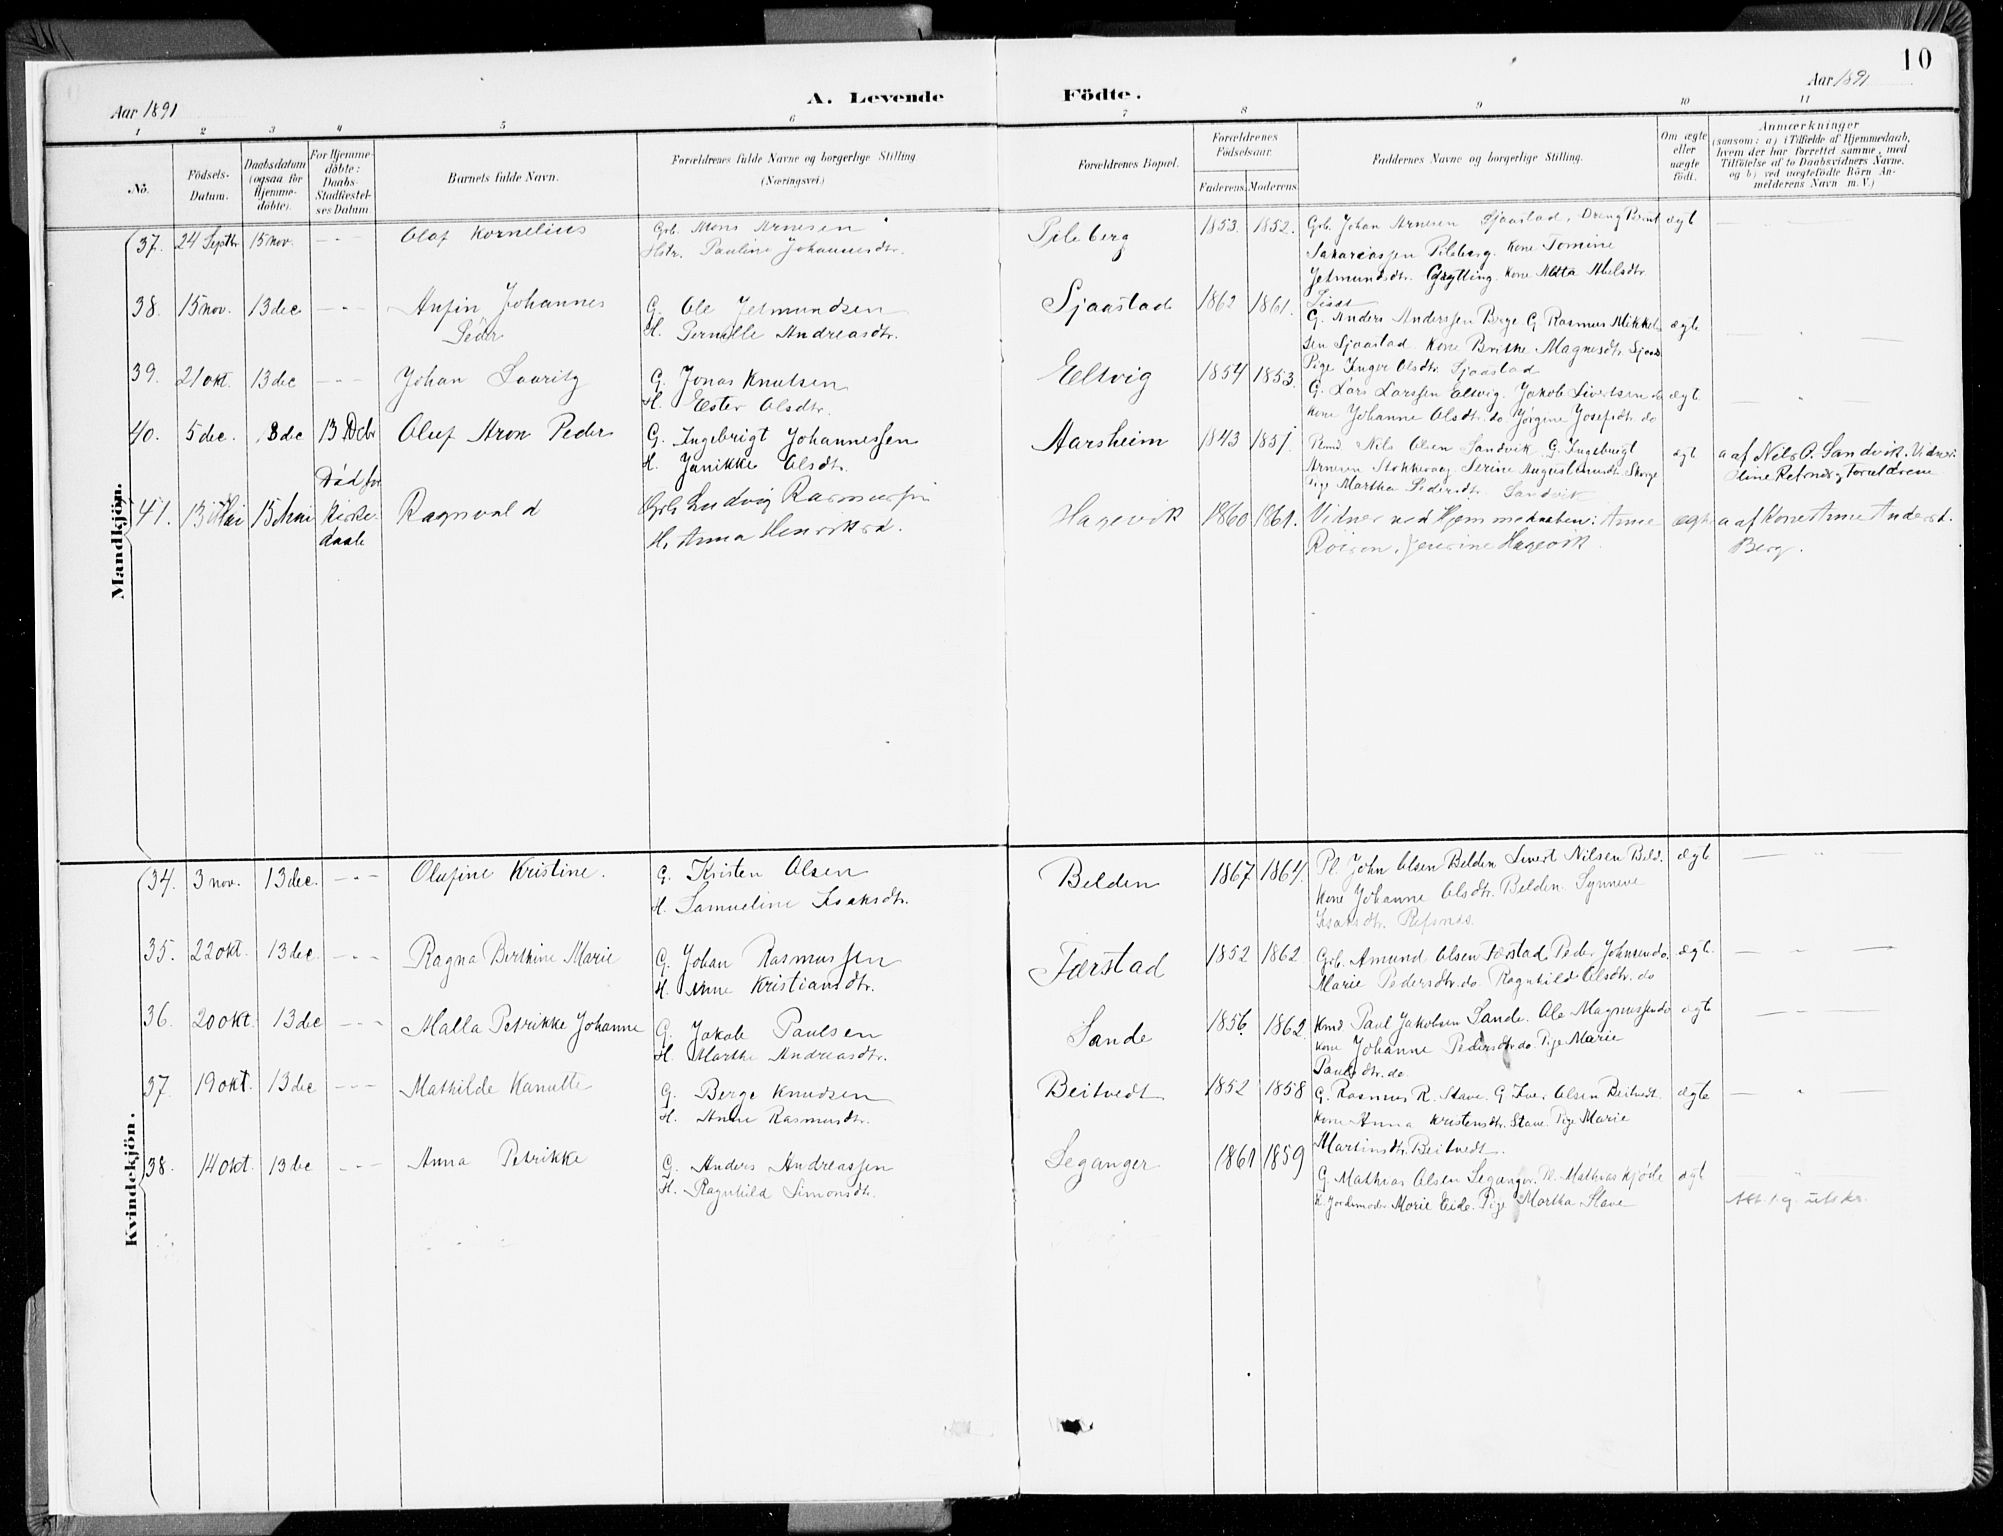 10
Aar 1891
A. Levende Födte.
Aar 1891
1 2 3 4 5 6 7 8 9 10 11
No.
Födsels-Datum.
Daabsdatum (ogsaa for Hjemme-döbte).
For Hjemme-döbte: Daabs-Stadfæstel-ses Datum
Barnets fulde Navn.
Forældrenes fulde Navne og borgerlige Stilling (Næringsvei)
Forældrenes Bopæl.
Forældrenes Födselsaar.
Faderens Moderens
Faddernes Navne og borgerlige Stilling.
Om ægte eller uægte födt.
Anmærkninger
(saasom: a) i Tilfælde af Hjemmedaab, hvem der har forrettet samme, med Tilföielse af to Daabsvidners Navne. og b) ved uægtefödte Börn An-melderens Navn m. V.)
Mandkjön.
37. 24 Septbr 15 nov. - " - Olaf Kornelius Grb. Mons Arnesen Pileberg 1853. 1852. Grb. Johan Arnesen Sjaastad, Dreng Bernt ægt
Hstr. Pauline Johannesdtr. Sakariassen Pileberg. Kone Tomine
Jetmundsdtr. Grytting. Kone Mætta Abelsdtr
38. 15 nov. 13 dec - " - Anfin Johannes G. Ole Jetmundsen Sjaastad 1862 1861. G. Anders Anderssen Berge G Rasmus Mikkel- ægte
Peder H. Pernille Andreasdtr. sen Sjaastad. Kone Brithe Magnesdtr Sjaas.
39. 21 okt. 13 dec - " - Johan Lauritz G. Jonas Knutsen Eltvig 1854 1853. Pige Inger Olsdtr. Sjaastad
H. Ester Olsdtr. G. Lars Larssen Eltvig. Jakob Sivertsen do ægte
Kone Johanne Olsdtr. do Jørgine Josefsdtr. do
40. 5 dec. 8 dec 13 Dcbr Oluf Aron Peder G. Ingebrigt Johannessen Aarsheim 1843 1851. Nils Olsen Sandvik G. Ingebrigt ægt a af Nils O. Sandvik. Vidner:
H. Janikke Olsdtr. Arnesen Stokkevaag Serine Augustinusdtr. Skorge Oline Refsnes og Forældrene
Pige Martha Pedersdtr. Sandvik
41. 13 Mai 15 Mai Død før Kirke-daab Ragnvald Grb Ludvig Rasmussen Hagevik 1860 1861. Vidner ved Hjemmedaaben: Anne ægte a af Kone Anne Andersd.
H. Anna Henriksd. Hagevik. Berg.
Kvindekjön.
34. 3 nov. 13 dec. - " - Olufine Kristine. G. Kristen Olsen Belden 1867 1864. Pl. John Olsen Belden Sivert Nilsen Beld. ægte - " -
H. Samueline Isaksdtr. Kone Johanne Olsdtr. Belden. Synneve
Isaksdtr. Refsnes.
35. 22 okt. 13 dec. - " - Ragna Berthine Marie G. Johan Rasmussen Færstad 1852 1862 Grb. Amund Olsen Færstad, Peder Johnsen do. ægte - " -
H. Anne Kristiansdtr. Marie Pedersdtr. do Ragnhild Olsdtr. do
36. 20 okt. 13 dec - " - Malla Petrikke Johanne G. Jakob Paulsen Sande 1856. 1862. Kmd Paul Jakobsen Sande. Ole Magnussen do ægte - " -
H. Marthe Andreasdtr. Kone Johanne Pedersdtr do. Pige Marie
Paulsdtr. do.
37. 19 okt. 13 dec - " - Mathilde Kanutte G. Berge Knudsen Beitvedt 1852 1858 G. Rasmus R. Stave. G Iver Olsen Beitvedt. ægte - " -
H. Anne Rasmusdtr. Kone Anna Kristensdtr. Stave. Pige Marie
Martinsdtr. Beitvedt.
38. 14 okt. 13 dec - " - Anna Petrikke G. Anders Andreassen Leganger 1861 1859 G Mathias Olsen Leganger. Pl. Mathias Kjøde ægt - " -
H. Ragnhild Simonsdtr. K. Jordemoder Marie Eide. Pige Martha Stave